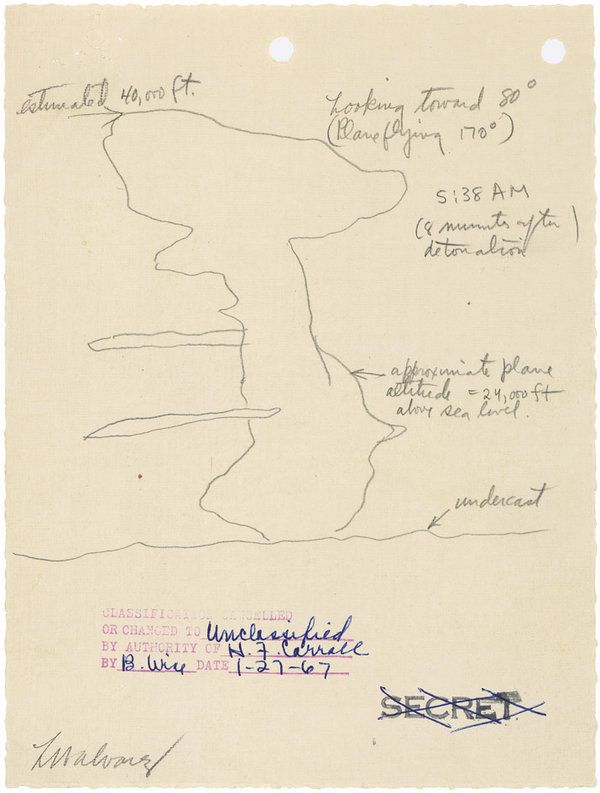 estimated 40,000 ft.
Looking toward 80°
(Plane flying 170°)
5:38 AM
(8 minutes after)
detonation
approximate plane
altitude = 24,000 ft
above sea level.
undercast
CLASSIFICATION CANCELLED
OR CHANGED TO Unclassified
BY AUTHORITY OF H. F. Carroll
BY B. Wise DATE 1-27-67
SECRET
LWAlvarez